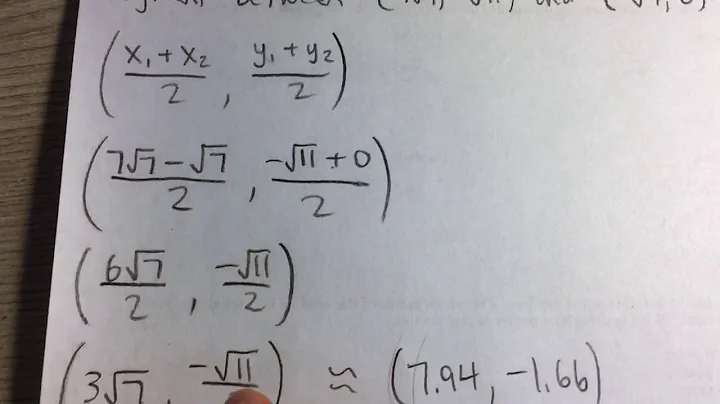 (x₁ + x₂ / 2, y₁ + y₂ / 2)
(7√7 − √7 / 2, −√11 + 0 / 2)
(6√7 / 2, −√11 / 2)
(3√7, −√11 / ) ≈ (7.94, −1.66)